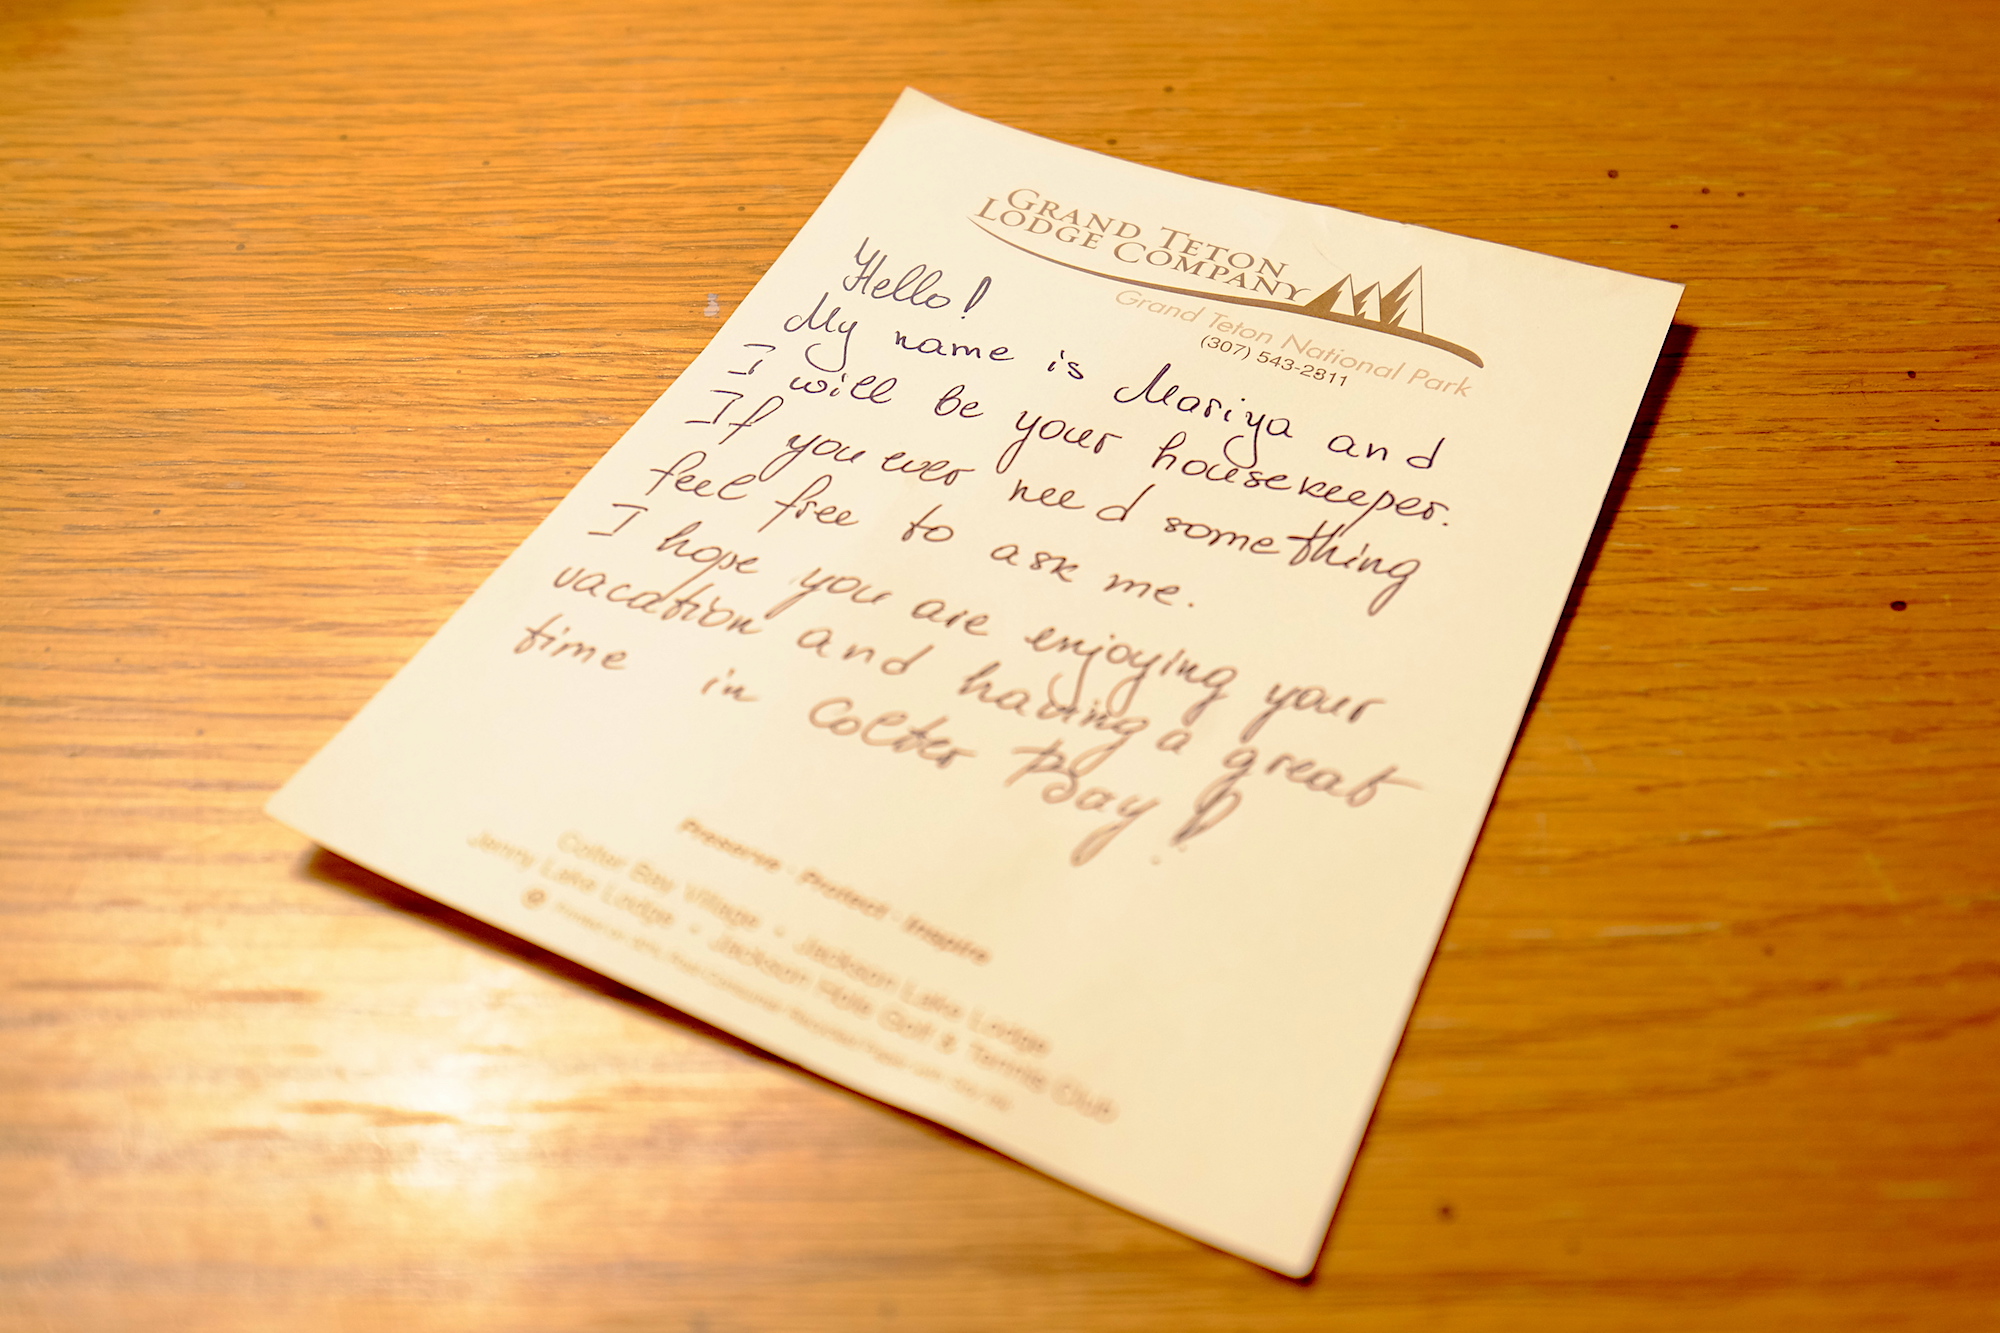 GRAND TETON
LODGE COMPANY
Grand Teton National Park
(307) 543-2811
Hello!
My name is Mariya and
I will be your housekeeper.
If you ever need something
feel free to ask me.
I hope you are enjoying your
vacation and having a great
time in Colter Bay!
Preserve · Protect · Inspire
Colter Bay Village · Jackson Lake Lodge
Jenny Lake Lodge · Jackson Hole Golf & Tennis Club